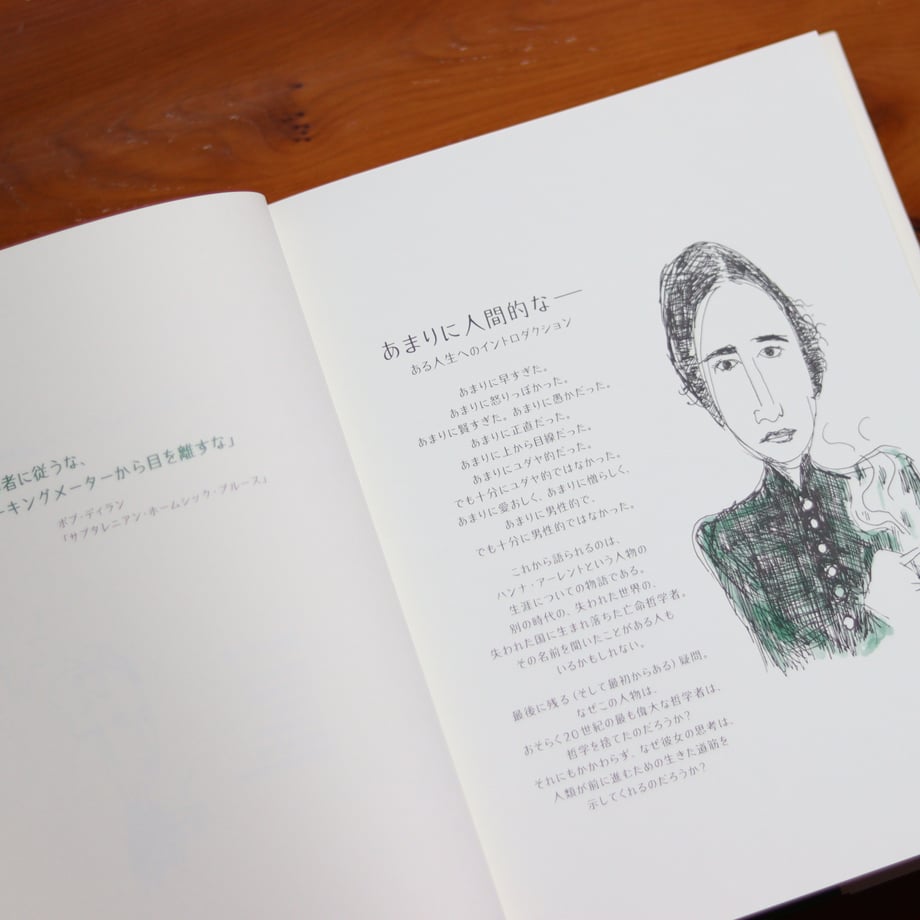 者に従うな、
ーキングメーターから目を離すな」
ボブ・ディラン
「サブタレニアン・ホームシック・ブルース」
あまりに人間的な──
ある人生へのイントロダクション
あまりに早すぎた。
あまりに怒りっぽかった。
あまりに賢すぎた。あまりに愚かだった。
あまりに正直だった。
あまりに上から目線だった。
あまりにユダヤ的だった。
でも十分にユダヤ的ではなかった。
あまりに愛おしく、あまりに憎らしく、
あまりに男性的で、
でも十分に男性的ではなかった。
これから語られるのは、
ハンナ・アーレントという人物の
生涯についての物語である。
別の時代の、失われた世界の、
失われた国に生まれ落ちた亡命哲学者。
その名前を聞いたことがある人も
いるかもしれない。
最後に残る（そして最初からある）疑問。
なぜこの人物は、
おそらく20世紀の最も偉大な哲学者は、
哲学を捨てたのだろうか？
それにもかかわらず、なぜ彼女の思考は、
人類が前に進むための生きた道筋を
示してくれるのだろうか？